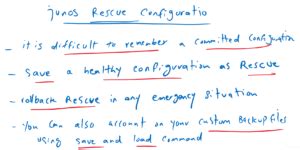 junos Rescue Configuratio
- it is difficult to remember a committed configuration
- Save a healthy configuration as Rescue
- rollback Rescue in any emergency situation
- You can also account on your custom Backup files
using save and load command